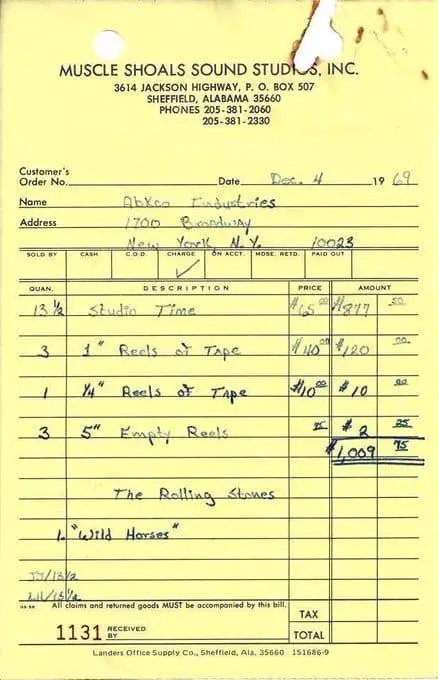 MUSCLE SHOALS SOUND STUDIOS, INC.
3614 JACKSON HIGHWAY, P. O. BOX 507
SHEFFIELD, ALABAMA 35660
PHONES 205-381-2060
205-381-2330
Customer's
Order No. Date Dec. 4 1969
Name Abkco Industries
Address 1700 Broadway
New York, N.Y. 10023
SOLD BY CASH C.O.D. CHARGE ON ACCT. MDSE. RETD. PAID OUT
QUAN. DESCRIPTION PRICE AMOUNT
13 1/2 Studio Time $65 00 $877 50
3 1" Reels of Tape $40 00 $120 00
1 1/4" Reels of Tape $10 00 $10 00
3 5" Empty Reels 75 $2 25
$1,009 75
The Rolling Stones
1. "Wild Horses"
JJ/13 1/2
LH/13 1/2
All claims and returned goods MUST be accompanied by this bill.
TAX
1131 RECEIVED BY TOTAL
Landers Office Supply Co., Sheffield, Ala. 35660 151686-9